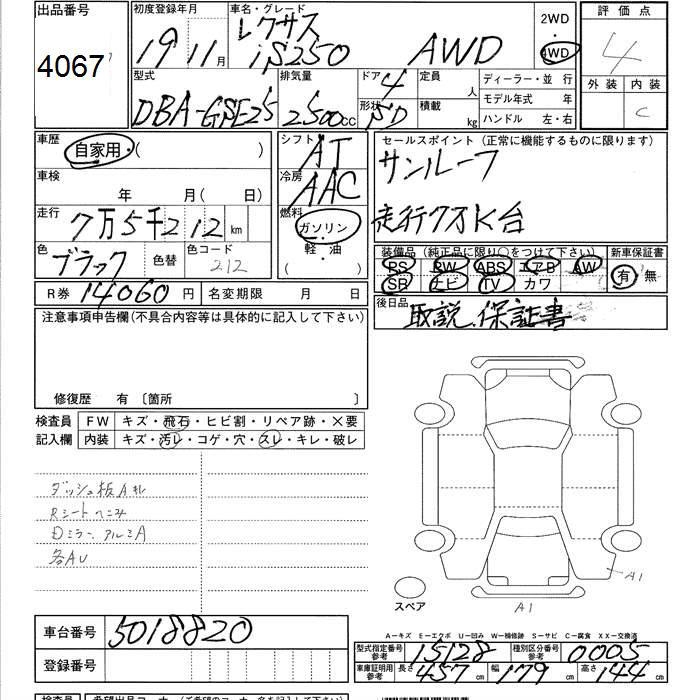 出品番号
4067
初度登録年月
19年11月
車名・グレード
レクサス
iS250 AWD
2WD
4WD
評価点
4
外装 内装
C
型式
DBA-GSE25
排気量
2500cc
ドア
4
形状
SD
定員
人
積載
kg
ディーラー・並 行
モデル年式 年
ハンドル 左・右
車歴
自家用・( )
車検
年 月( 日)
走行
7万5千212km
色
ブラック
色替
色コード
212
シフト
AT
冷房
AAC
燃料
ガソリン
軽・油
( )
セールスポイント(正常に機能するものに限ります)
サンルーフ
走行7万K台
装備品(純正品に限り○をつけて下さい)
PS PW ABS エアB AW
SR ナビ TV カワ
新車保証書
有・無
後日品
取説、保証書
R券 14060円
名変期限 月 日
注意事項申告欄(不具合内容等は具体的に記入して下さい)
修復歴 有〔箇所 〕
検査員
記入欄
FW キズ・飛石・ヒビ割・リペア跡・×要
内装 キズ・汚レ・コゲ・穴・スレ・キレ・破レ
ダッシュ板Aキレ
Rシートヘコみ
Dミラー、アルミA
各AU
スペア
A1
A1
A−キズ E−エクボ U−凹み W−補修跡 S−サビ C−腐食 XX−交換済
車台番号 5018820
登録番号
型式指定番号
参考
15128
種別区分番号
参考
0005
車庫証明用
参考
長さ 457
幅 179
高さ 144